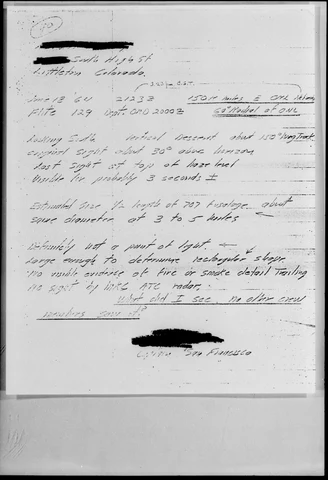 South High St
Littleton Colorado.
June 18 64 2123Z 150 n miles E
Flite 129 Dept. ORD 2000Z 60° Radial of ONL
Looking S.W. Vertical Descent about 150° Mag Track
original sight about 30° above horizon
Lost sight at top of haze level
Visible for probably 3 seconds ±
Estimated size 1/2 length of 707 fuselage. about
same diameter at 3 to 5 miles ←
Definitely not a point of light
Large enough to determine rectangular shape.
No visible evidence of fire or smoke trailing
No sight by ATC radar.
What did I see no other crew
members saw it?
San Francisco